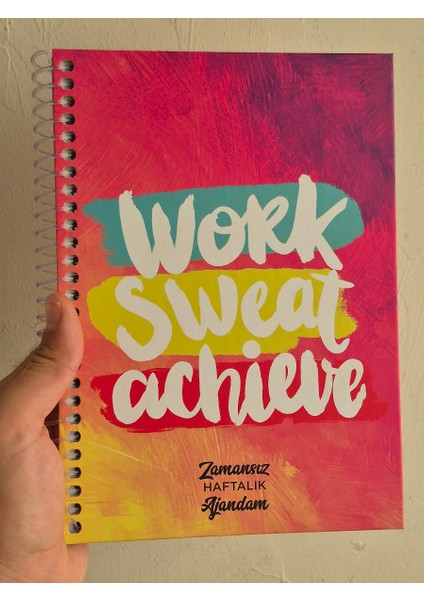 work
sweat
achieve
Zamansız
HAFTALIK
Ajandam